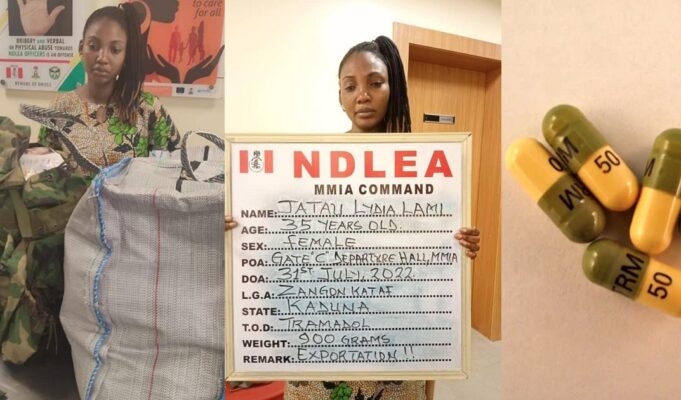 BRIBERY AND VERBAL
OR PHYSICAL ABUSE TOWARDS
NDLEA OFFICERS IS AN OFFENSE
to care
for all
NDLEA
MMIA COMMAND
NAME: JATAU LYDIA LAMI
AGE: 35 YEARS OLD.
SEX: FEMALE
POA: GATE 'C' DEPARTURE HALL, MMIA
DOA: 31ST JULY, 2022
L.G.A: ZANGON KATAF
STATE: KADUNA
T.O.D: TRAMADOL
WEIGHT: 900 GRAMS
REMARK: EXPORTATION !!
50
TRM 50